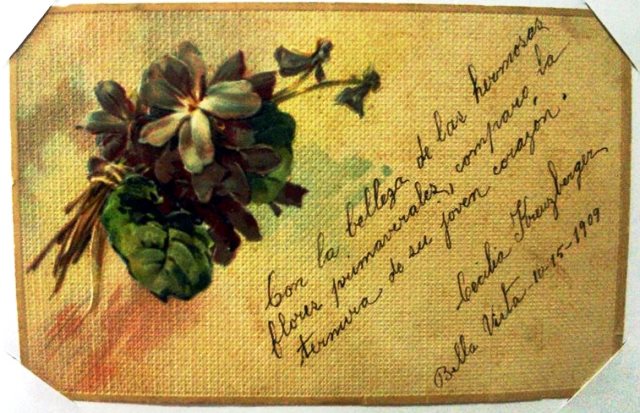 Con la belleza de las hermosas
flores primaverales, comparo la
ternura de su joven corazón.
Cecilia Kreuzberger
Bella Vista - 10-15-1909